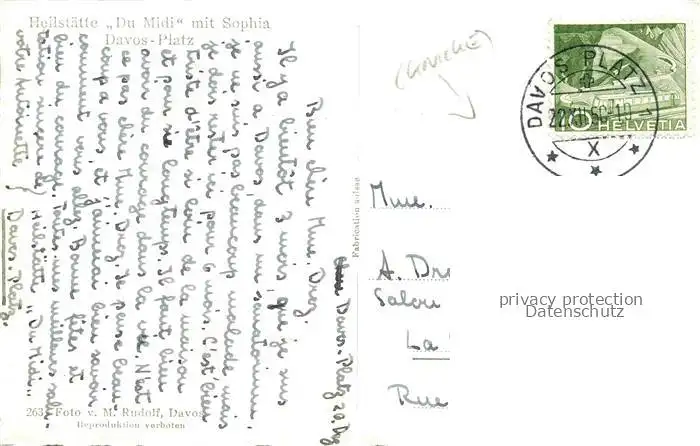 Heilstätte „Du Midi" mit Sophia
Davos-Platz
Davos-Platz 20. Dz
Bien chère Mme. Droz.
Il y a bientôt 3 mois que je suis
aussi à Davos, dans un sanatorium.
je ne suis pas beaucoup malade mais
je dois rester ici pour 6 mois. C'est bien
triste d'être si loin de la maison
et pour si longtemps. Il faut bien
avoir du courage dans la vie. N'est
ce pas chère Mme. Droz. Je pense beau-
coup à vous et j'aimerai bien savoir
comment vous allez. Bonne fêtes et
bien du courage. Toutes mes meilleurs salu-
tation encore de
votre Antoinette
Heilstätte „Du Midi"
Davos-Platz.
263 Foto v. M. Rudolf, Davos
Reproduktion verboten
Fabrication suisse
DAVOS PLATZ 1
22.XII.50-10
X
10 HELVETIA
Mme.
A. Dr
Salon
La
Rue
privacy protection
Datenschutz